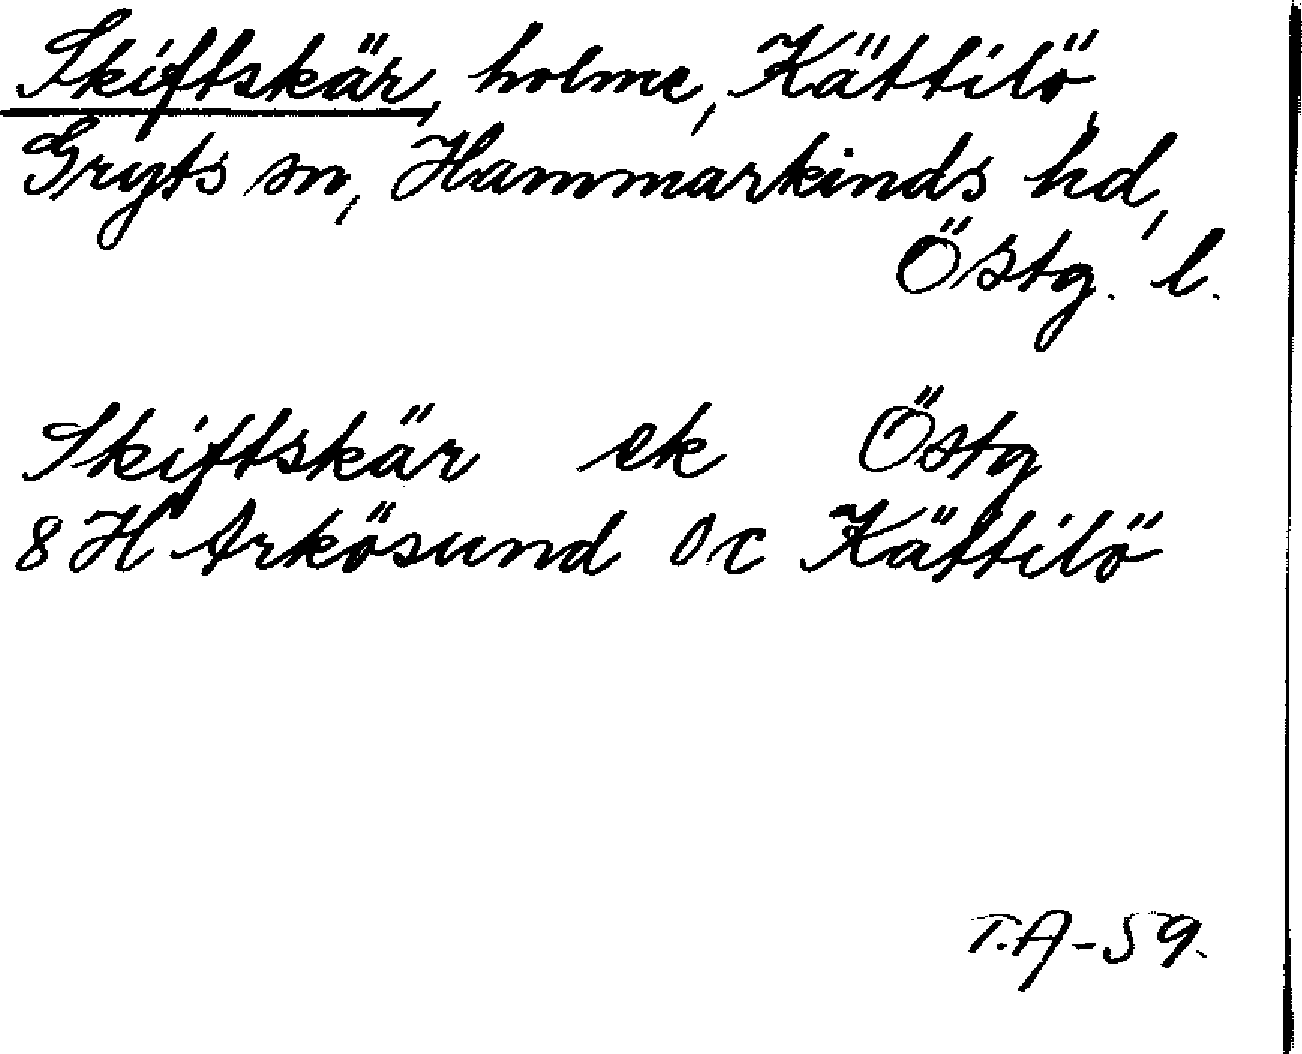 Skiftskär, holme, Kättilö,
Gryts sn, Hammarkinds hd,
Östg. l.
Skiftskär ek Östg
8 H Arkösund 0c Kättilö
T.A-59.